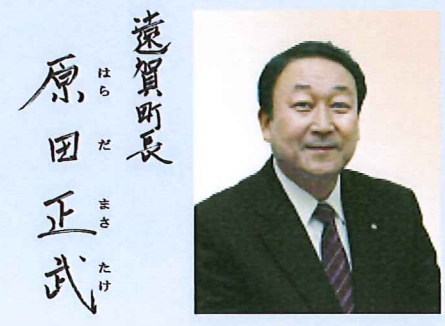 遠賀町長
原田正武
はらだまさたけ